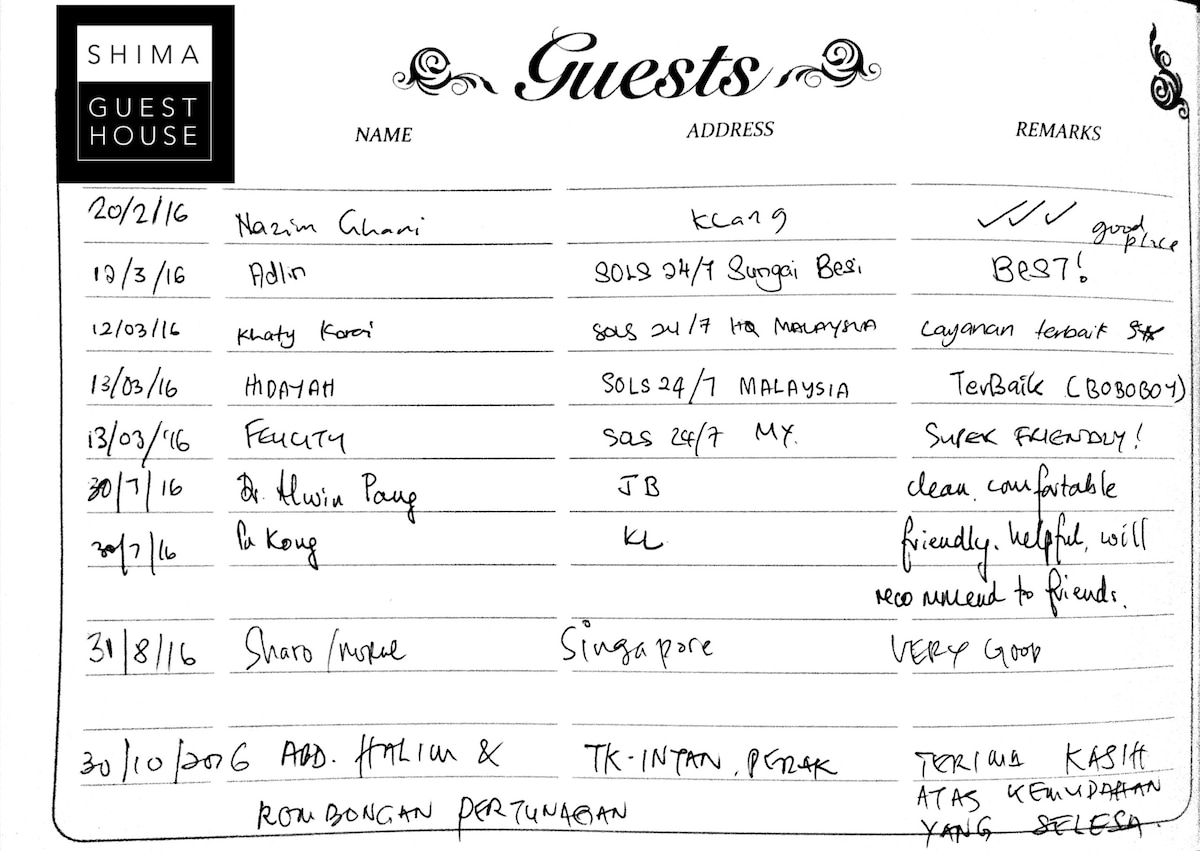 SHIMA
GUEST
HOUSE
Guests
NAME ADDRESS REMARKS
20/2/16 Nazim Ghani Klang ✓✓✓ good place
12/3/16 Adlin SOLS 24/7 Sungai Besi BEST!
12/03/16 Khaty Korai SOLS 24/7 HQ MALAYSIA Layanan terbaik 5★
13/03/16 HIDAYAH SOLS 24/7 MALAYSIA TerBaik (BOBOBOY)
13/03/'16 FELICITY SOLS 24/7 MY. SUPER FRIENDLY!
30/7/16 Dr. Alwin Pang JB clean. comfortable
30/7/16 Pu Kong KL friendly. helpful, will
recommend to friends.
31/8/16 Sharo / Singapore VERY GOOD
30/10/2016 ABD. HALIM & TK-INTAN, PERAK TERIMA KASIH
ROMBONGAN PERTUNAGAN ATAS KEMUDAHAN
YANG SELESA.